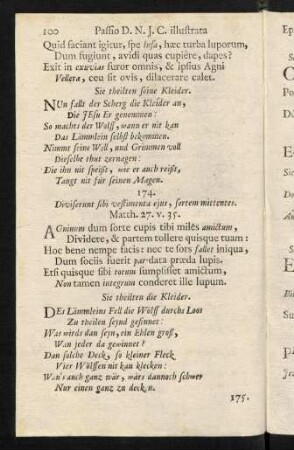 100 Passio D. N. J. C. illustrata
Quid faciant igitur, spe lusa, hæc turba luporum,
Dum fugiunt, avidi quas cupiêre, dapes?
Exit in exuvias furor omnis, & ipsius Agni
Vellera, ceu sit ovis, dilacerare calet.
Sie theilten seine Kleider.
NUn fallt der Scherg die Kleider an,
Die JEsu Er genommen:
So machts der Wolff, wann er nit kan
Das Lämmlein selbst bekommen.
Nimmt seine Woll, und Grimmen voll
Dieselbe thut zernagen:
Die ihn nit speist, wie er auch reist,
Taugt nit für seinen Magen.
174.
Diviserunt sibi vestimenta ejus, sortem mittentes.
Matth. 27. v. 35.
AGninum dum sorte cupis tibi miles amictum,
Dividere, & partem tollere quisque tuam:
Hoc bene nempe facis: nec te sors fallet iniqua,
Dum sociis fuerit par-data præda lupis.
Etsi quisque sibi totum sumpsisset amictum,
Non tamen integrum conderet ille lupum.
Sie theilten die Kleider.
DEs Lämmleins Fell die Wölff durchs Loos
Zu theilen seynd gesinnet:
Was wirds dan seyn, ein Ehlen groß,
Wan jeder da gewinnet?
Dan solche Deck, so kleiner Fleck
Vier Wölffen nit kan klecken:
Wan's auch ganz wär, wärs dannoch schwer
Nur einen ganz zu decken.
175.